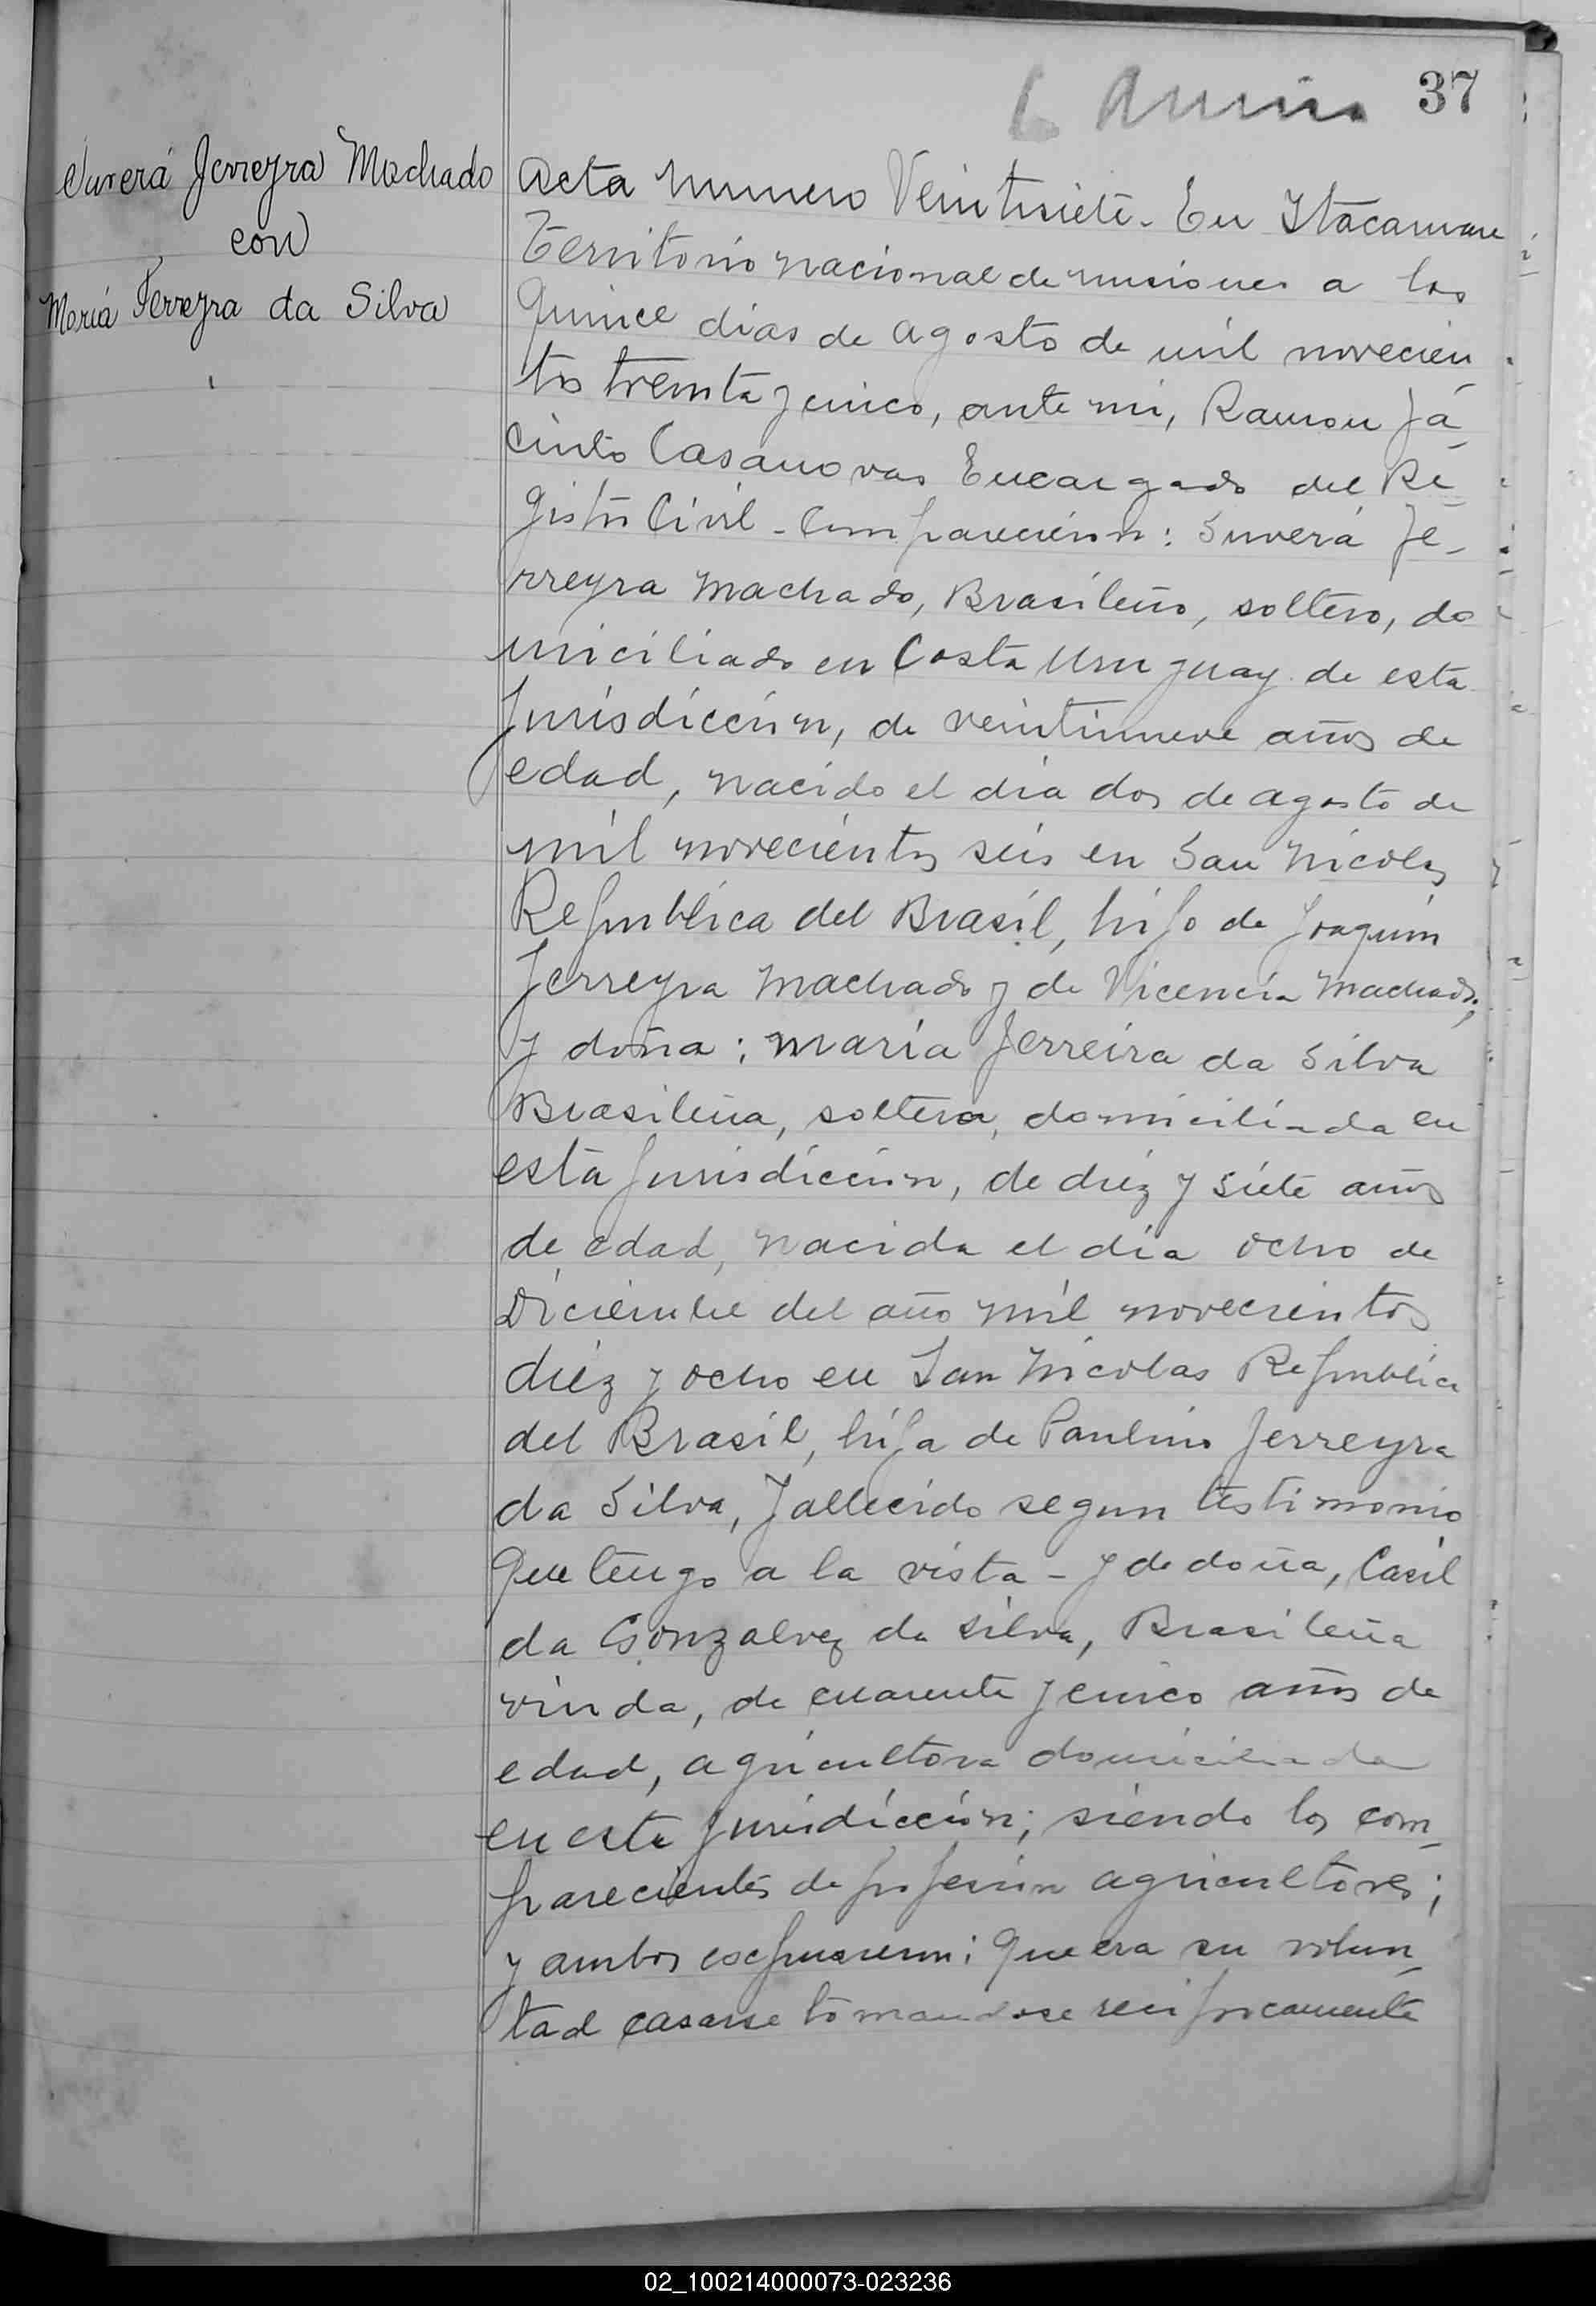 37
Suverá Ferreyra Machado
con
María Ferreyra da Silva
Acta numero Veintisiete. En Itacaruare
Territorio nacional de misiones a los
Quince dias de agosto de mil novecien
tos treinta y cinco, ante mi, Ramon Já
cinto Casanovas Encargado del Re
gistro Civil - Comparecieron: Suverá Fe-
rreyra Machado, Brasileño, soltero, do
miciliado en Costa Uruguay de esta
Jurisdiccion, de veintinueve años de
edad, nacido el dia dos de agosto de
mil novecientos seis en San Nicolas
Republica del Brasil, hijo de Joaquin
Ferreyra Machado y de Vicencia Machado;
y doña: María Ferreira da Silva
Brasileña, soltera, domiciliada en
esta Jurisdiccion, de diez y siete años
de edad, nacida el dia ocho de
Diciembre del año mil novecientos
diez y ocho en San Nicolas Republica
del Brasil, hija de Paulino Ferreyra
da Silva, Fallecido segun testimonio
Que tengo a la vista - y de doña, Casil
da Gonzalvez da Silva, Brasileña
viuda, de cuarenta y cinco años de
edad, agricultora domiciliada
en esta Jurisdiccion; siendo los com-
parecientes de profesion agricultores;
y ambos expresaron: Que era su volun-
tad casarse tomandose reciprocamente
02_100214000073-023236